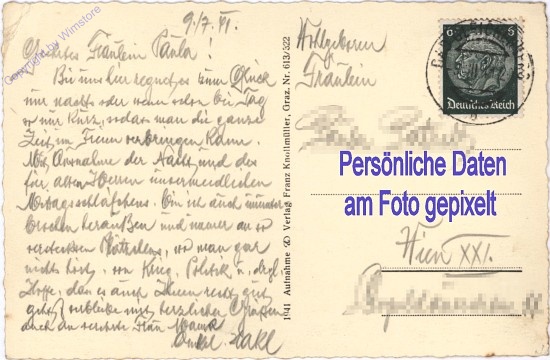 Copyright by Wimstore
9./7. 41.
Geehrtes Fräulein Paula!
Bei uns hier regnet es zum Glück
nur nachts oder wenn schon bei Tag
nur kurz, sodass man die ganze
Zeit im Freien verbringen kann.
Mit Ausnahme der Nacht und des
für alten Herren unvermeidlichen
Mittagsschlafchens. Bin ich auch
draußen und immer an so
versteckten Plätzchens, wo man gar
nichts hört, von Krieg, Politik u. drgl.
Hoffe, dass es auch Ihnen recht gut
geht, verbleibe mit herzlichen Grüßen
auch an verehrte Frau Mama
Onkel
1941 Aufnahme & Verlag Franz Knollmüller, Graz, Nr. 613/322
Wohlgeboren
Fräulein
6 6
Deutsches Reich
Persönliche Daten
am Foto gepixelt
Wien XXI.